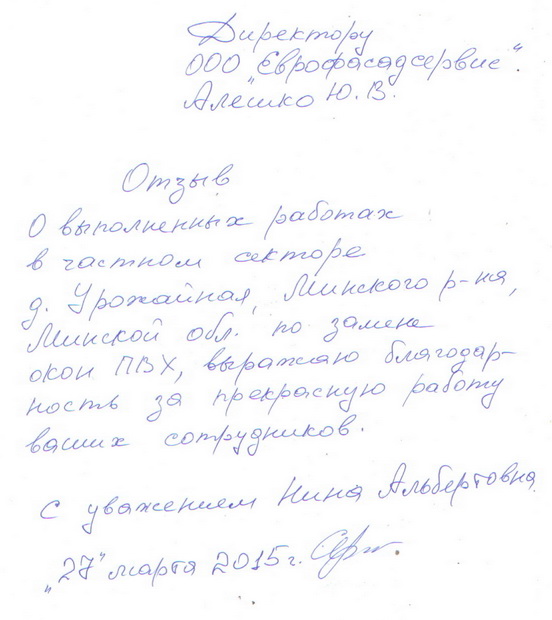 Директору
ООО „Еврофасадсервис".
Алешко Ю.В.
Отзыв
О выполненных работах
в частном секторе
д. Урожайная, Минского р-на,
Минской обл. по замене
окон ПВХ, выражаю благодар-
ность за прекрасную работу
ваших сотрудников.
С уважением Нина Альбертовна
„27" марта 2015 г.